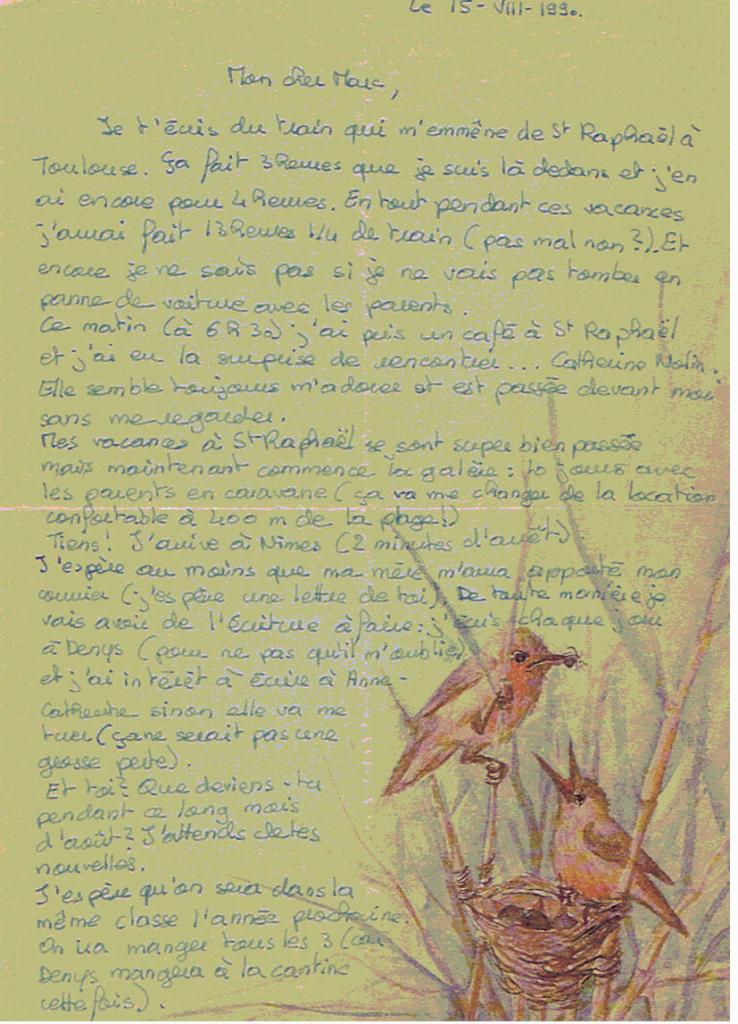 Le 15-VIII-1990.
Mon cher Marc,
Je t'écris du train qui m'emmène de St Raphaël à
Toulouse. Ça fait 3 heures que je suis là dedans et j'en
ai encore pour 4 heures. En tout pendant ces vacances
j'aurai fait 13 heures 1/4 de train (pas mal non ?). Et
encore je ne sais pas si je ne vais pas tomber en
panne de voiture avec les parents.
Ce matin (à 6h30) j'ai pris un café à St Raphaël
et j'ai eu la surprise de rencontrer... Catherine Molin.
Elle semble toujours m'adorer et est passée devant moi
sans me regarder.
Mes vacances à St Raphaël se sont super bien passée
mais maintenant commence la galère : 10 jours avec
les parents en caravane (ça va me changer de la location
confortable à 400 m de la plage !)
Tiens ! J'arrive à Nîmes (2 minutes d'arrêt)
J'espère au moins que ma mère m'aura apporté mon
courrier (j'espère une lettre de toi). De toute manière je
vais avoir de l'écriture à faire : j'écris chaque jour
à Denys (pour ne pas qu'il m'oublie)
et j'ai intérêt à écrire à Anne-
Catherine sinon elle va me
tuer (ça ne serait pas une
grosse perte).
Et toi ? Que deviens-tu
pendant ce long mois
d'août ? J'attends de tes
nouvelles.
J'espère qu'on sera dans la
même classe l'année prochaine.
On ira manger tous les 3 (car
Denys mangera à la cantine
cette fois).